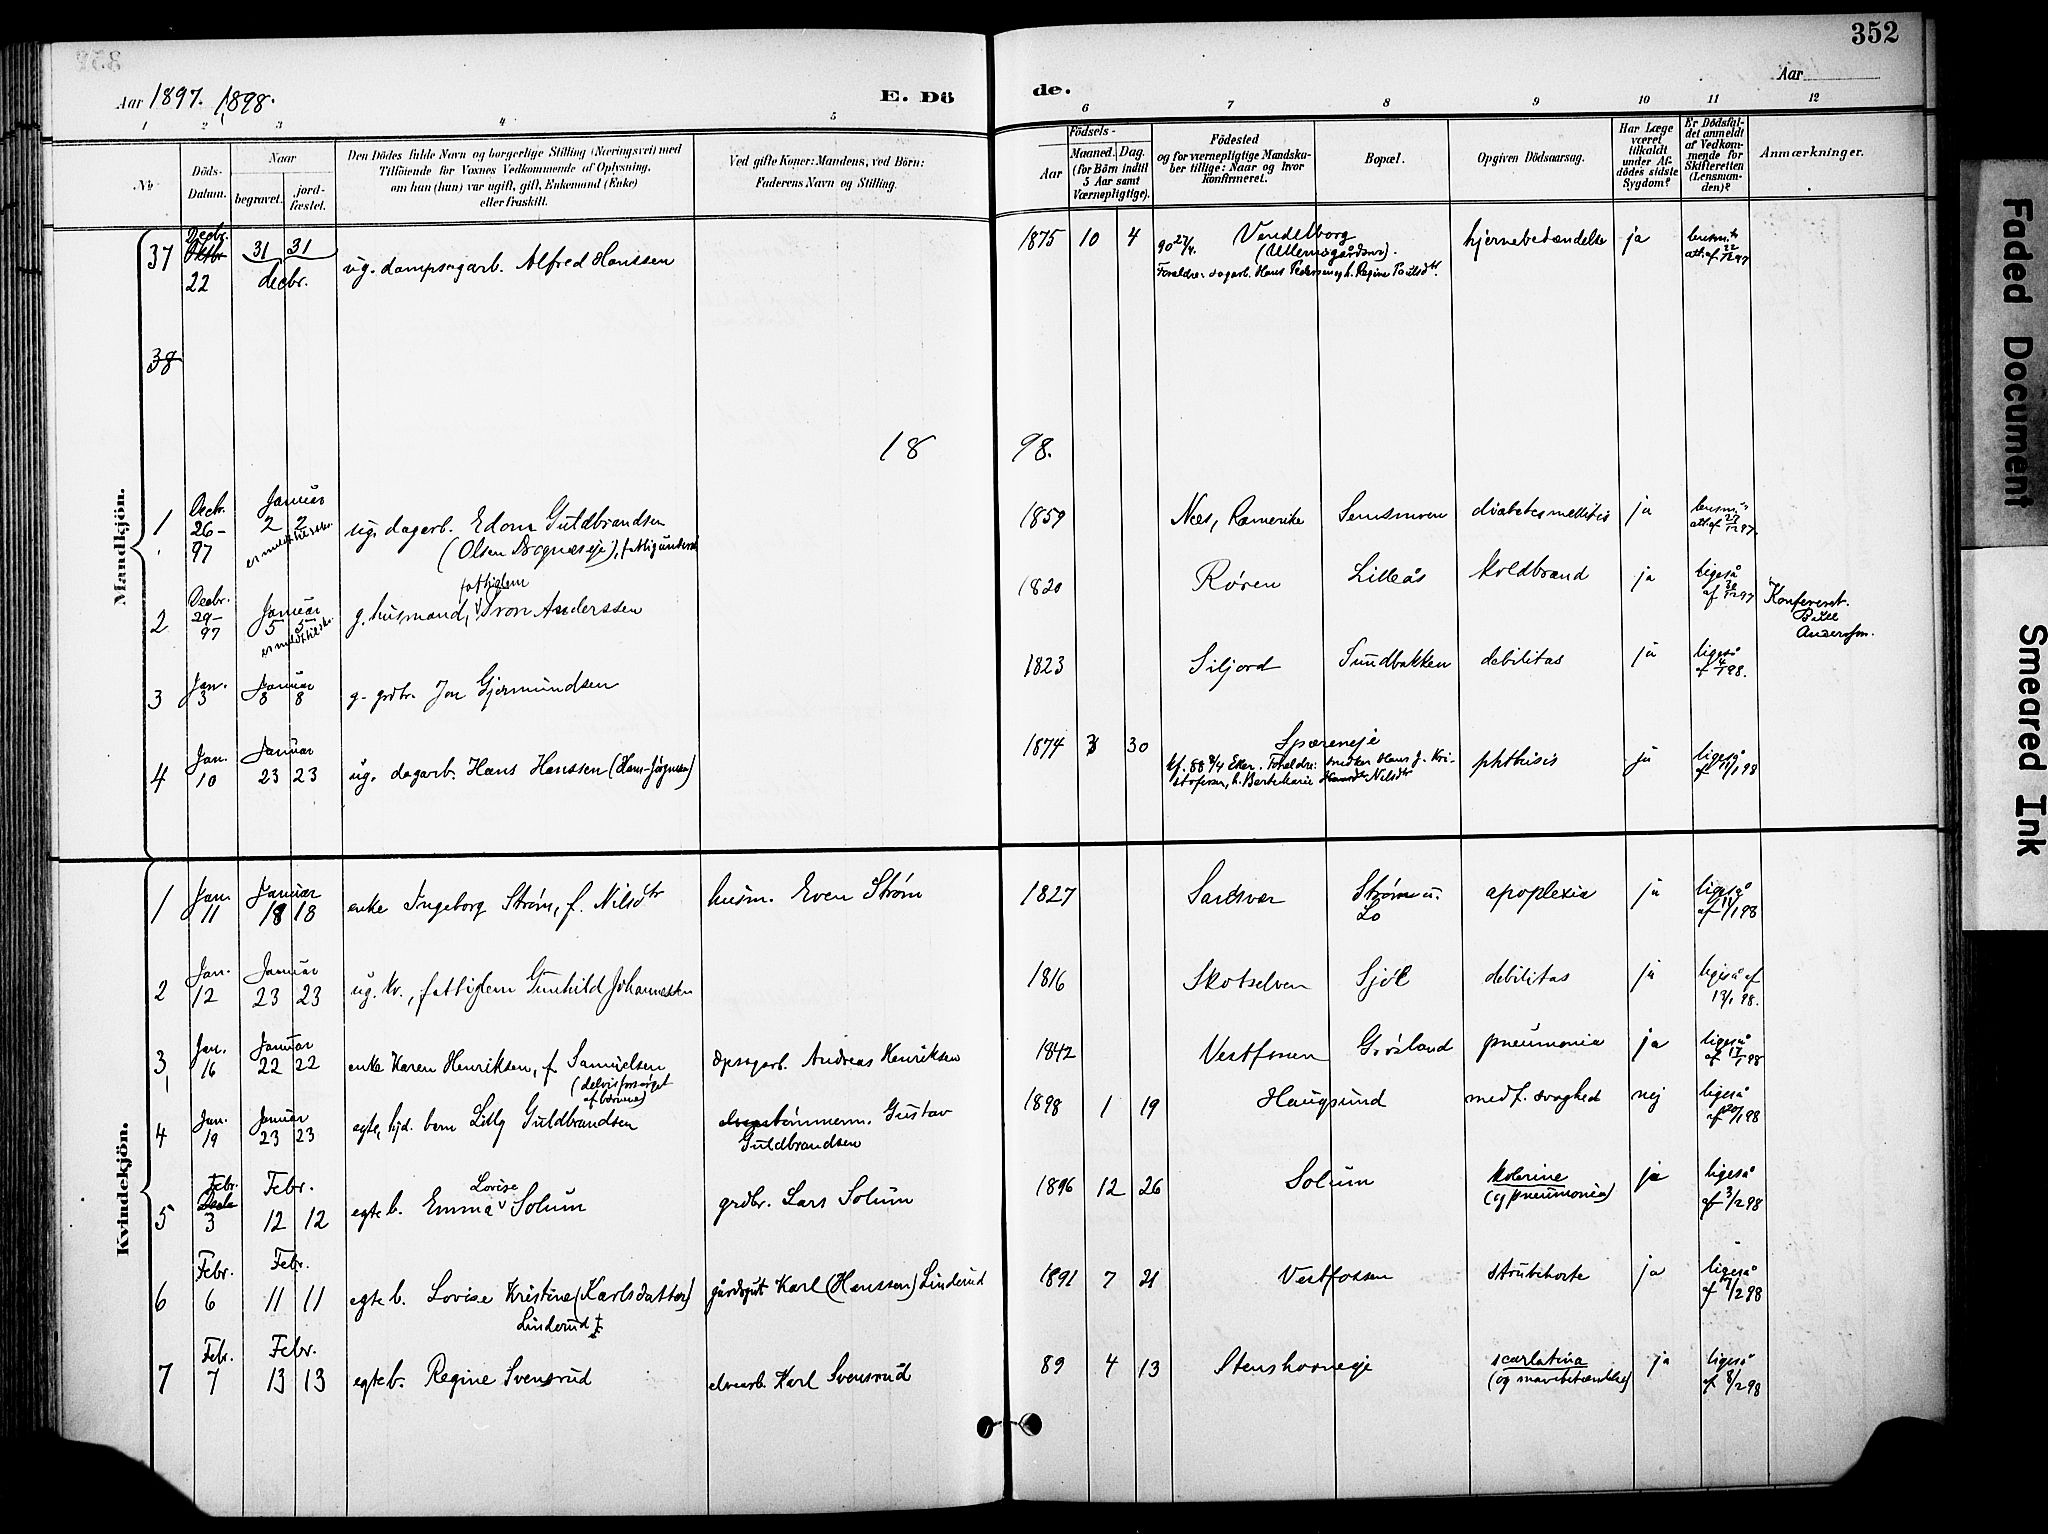 352
Aar 1897. 1898.
E. Dö de.
Aar
1 2 3 4 5 6 7 8 9 10 11 12
No
Döds-
Datum.
Naar
begravet.
jord-
fæstet.
Den Dödes fulde Navn og borgerlige Stilling (Næringsvei) med
Tilföiende for Voxnes Vedkommende af Oplysning,
om han (hun) var ugift, gift, Enkemand (Enke)
eller fraskilt.
Ved gifte Koner: Mandens, ved Börn:
Faderens Navn og Stilling.
Födsels-
Aar
Maaned. Dag.
(for Börn indtil
5 Aar samt
Værnepligtige).
Födested
og for værnepligtige Mandska-
ber tillige: Naar og hvor
konfirmeret.
Bopæl.
Opgiven Dödsaarsag.
Har Læge
været
tilkaldt
under Af-
dödes sidste
Sygdom?
Er Dödsfal-
det anmeldt
af Vedkom-
mende for
Skifteretten
(Lensman-
den)?
Anmærkninger.
Mandkjön.
37 Decbr. 22 31 31 decbr. ug. dampsagarb. Alfred Hanssen 1875 10 4 90 27/4. Vendelborg hjernebetændelse ja
38
18 98.
1 Decbr. 26-97 Januar 2 2 ug. dagarb. Edom Guldbrandsen 1859 Næs, Romerike diabetes mellitus ja
2 Decbr. 29-97 Januar 5 5 g. husmand, fattiglem Iron Anderssen 1820 Røren Lilleås koldbrand ja ligeså
Konfereret.
3 Jan. 3 Januar 8 8 g. grdbr. Jon Gjermundsen 1823 Siljord Sundbakken debilitas ja ligeså af 4/1 98.
4 Jan. 10 Januar 23 23 ug. dagarb. Hans Hanssen (Hans Jörgensen) 1874 3 30 Spæreneje phthisis ja ligeså af 11/1 98
Kvindekjön.
1 Jan. 11 Januar 18 18 enke Ingeborg Strøm, f. Nilsdtr husm. Even Strøm 1827 Sandsvær Strøm u. Lo apoplexia ja ligeså af 11/1 98
2 Jan. 12 Januar 23 23 ug. kv., fattiglem Gunhild Johannesen 1816 Skotselven Sjøl debilitas ja ligeså af 13/1 98.
3 Jan. 16 Januar 22 22 enke Karen Henriksen, f. Samuelsen (delvis forsørget af børnene) Andreas Henriksen 1842 Vestfossen Grøsland pneumonia ja ligeså af 17/1 98
4 Jan. 19 Januar 23 23 egte, hjd. barn Lilly Guldbrandsen tømmerm. Gustav Guldbrandsen 1898 1 19 Haugsund medf. svaghed nej ligeså af 20/1 98
5 Febr. 3 Febr. 12 12 egte b. Emma Lovise Solum grdbr. Lars Solum 1896 12 26 Solum kolerine (og pneumonia) ja ligeså af 3/2 98
6 Febr. 6 Febr. 11 11 egte b. Lovise Kristine (Karlsdatter) Linderud gårdsgut Karl (Hanssen) Linderud 1891 7 21 Vestfossen strubehoste ja ligeså af 7/2 98
7 Febr. 7 Febr. 13 13 egte b. Regine Svensrud elvearb. Karl Svensrud 89 4 13 Stenshorneje scarlatina (og nyrebetændelse) ja ligeså af 8/2 98
Faded Document
Smeared Ink